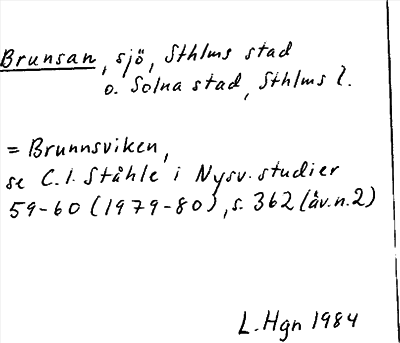 Brunsan, sjö, Sthlms stad
o. Solna stad, Sthlms l.
= Brunnsviken,
se C.I. Ståhle i Nysv. studier
59-60 (1979-80), s. 362 (äv. n. 2)
L. Hgn 1984